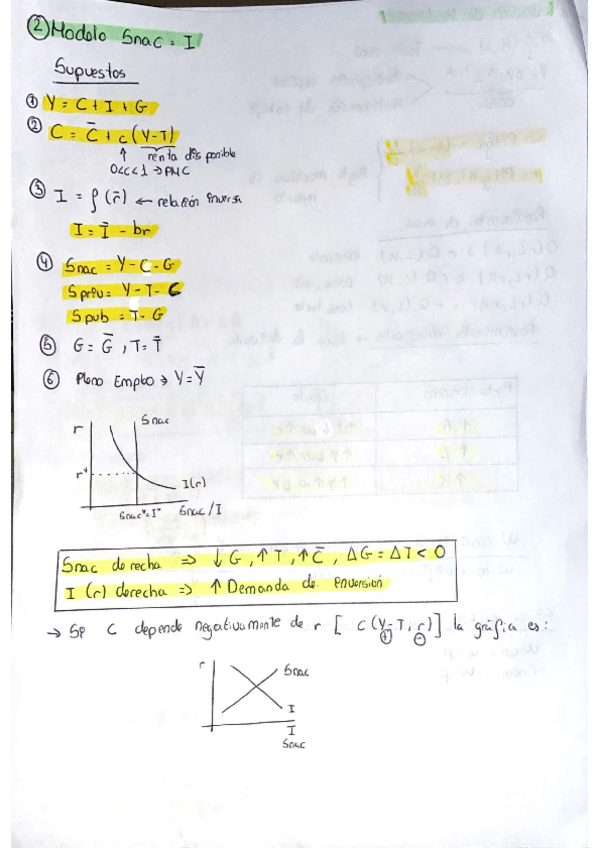 ② Modelo Snac = I
Supuestos
① Y = C + I + G
② C = C̄ + c (Y-T)
↑ renta disponible
0<c<1 → PMC
③ I = f (r̄) ← relación inversa
I = Ī - br
④ Snac = Y - C - G
Spriv = Y - T - C
Spub = T - G
⑤ G = Ḡ , T = T̄
⑥ Pleno Empleo → Y = Ȳ
r
Snac
r*
I(r)
Snac* = I*
Snac / I
Snac derecha ⇒ ↓ G , ↑ T , ↑ C̄ , ΔG = ΔT < 0
I (r) derecha ⇒ ↑ Demanda de inversión
→ Si C depende negativamente de r [ C (Y-T, r) ] la gráfia es:
⊕ ⊖
r
Snac
I
I
Snac